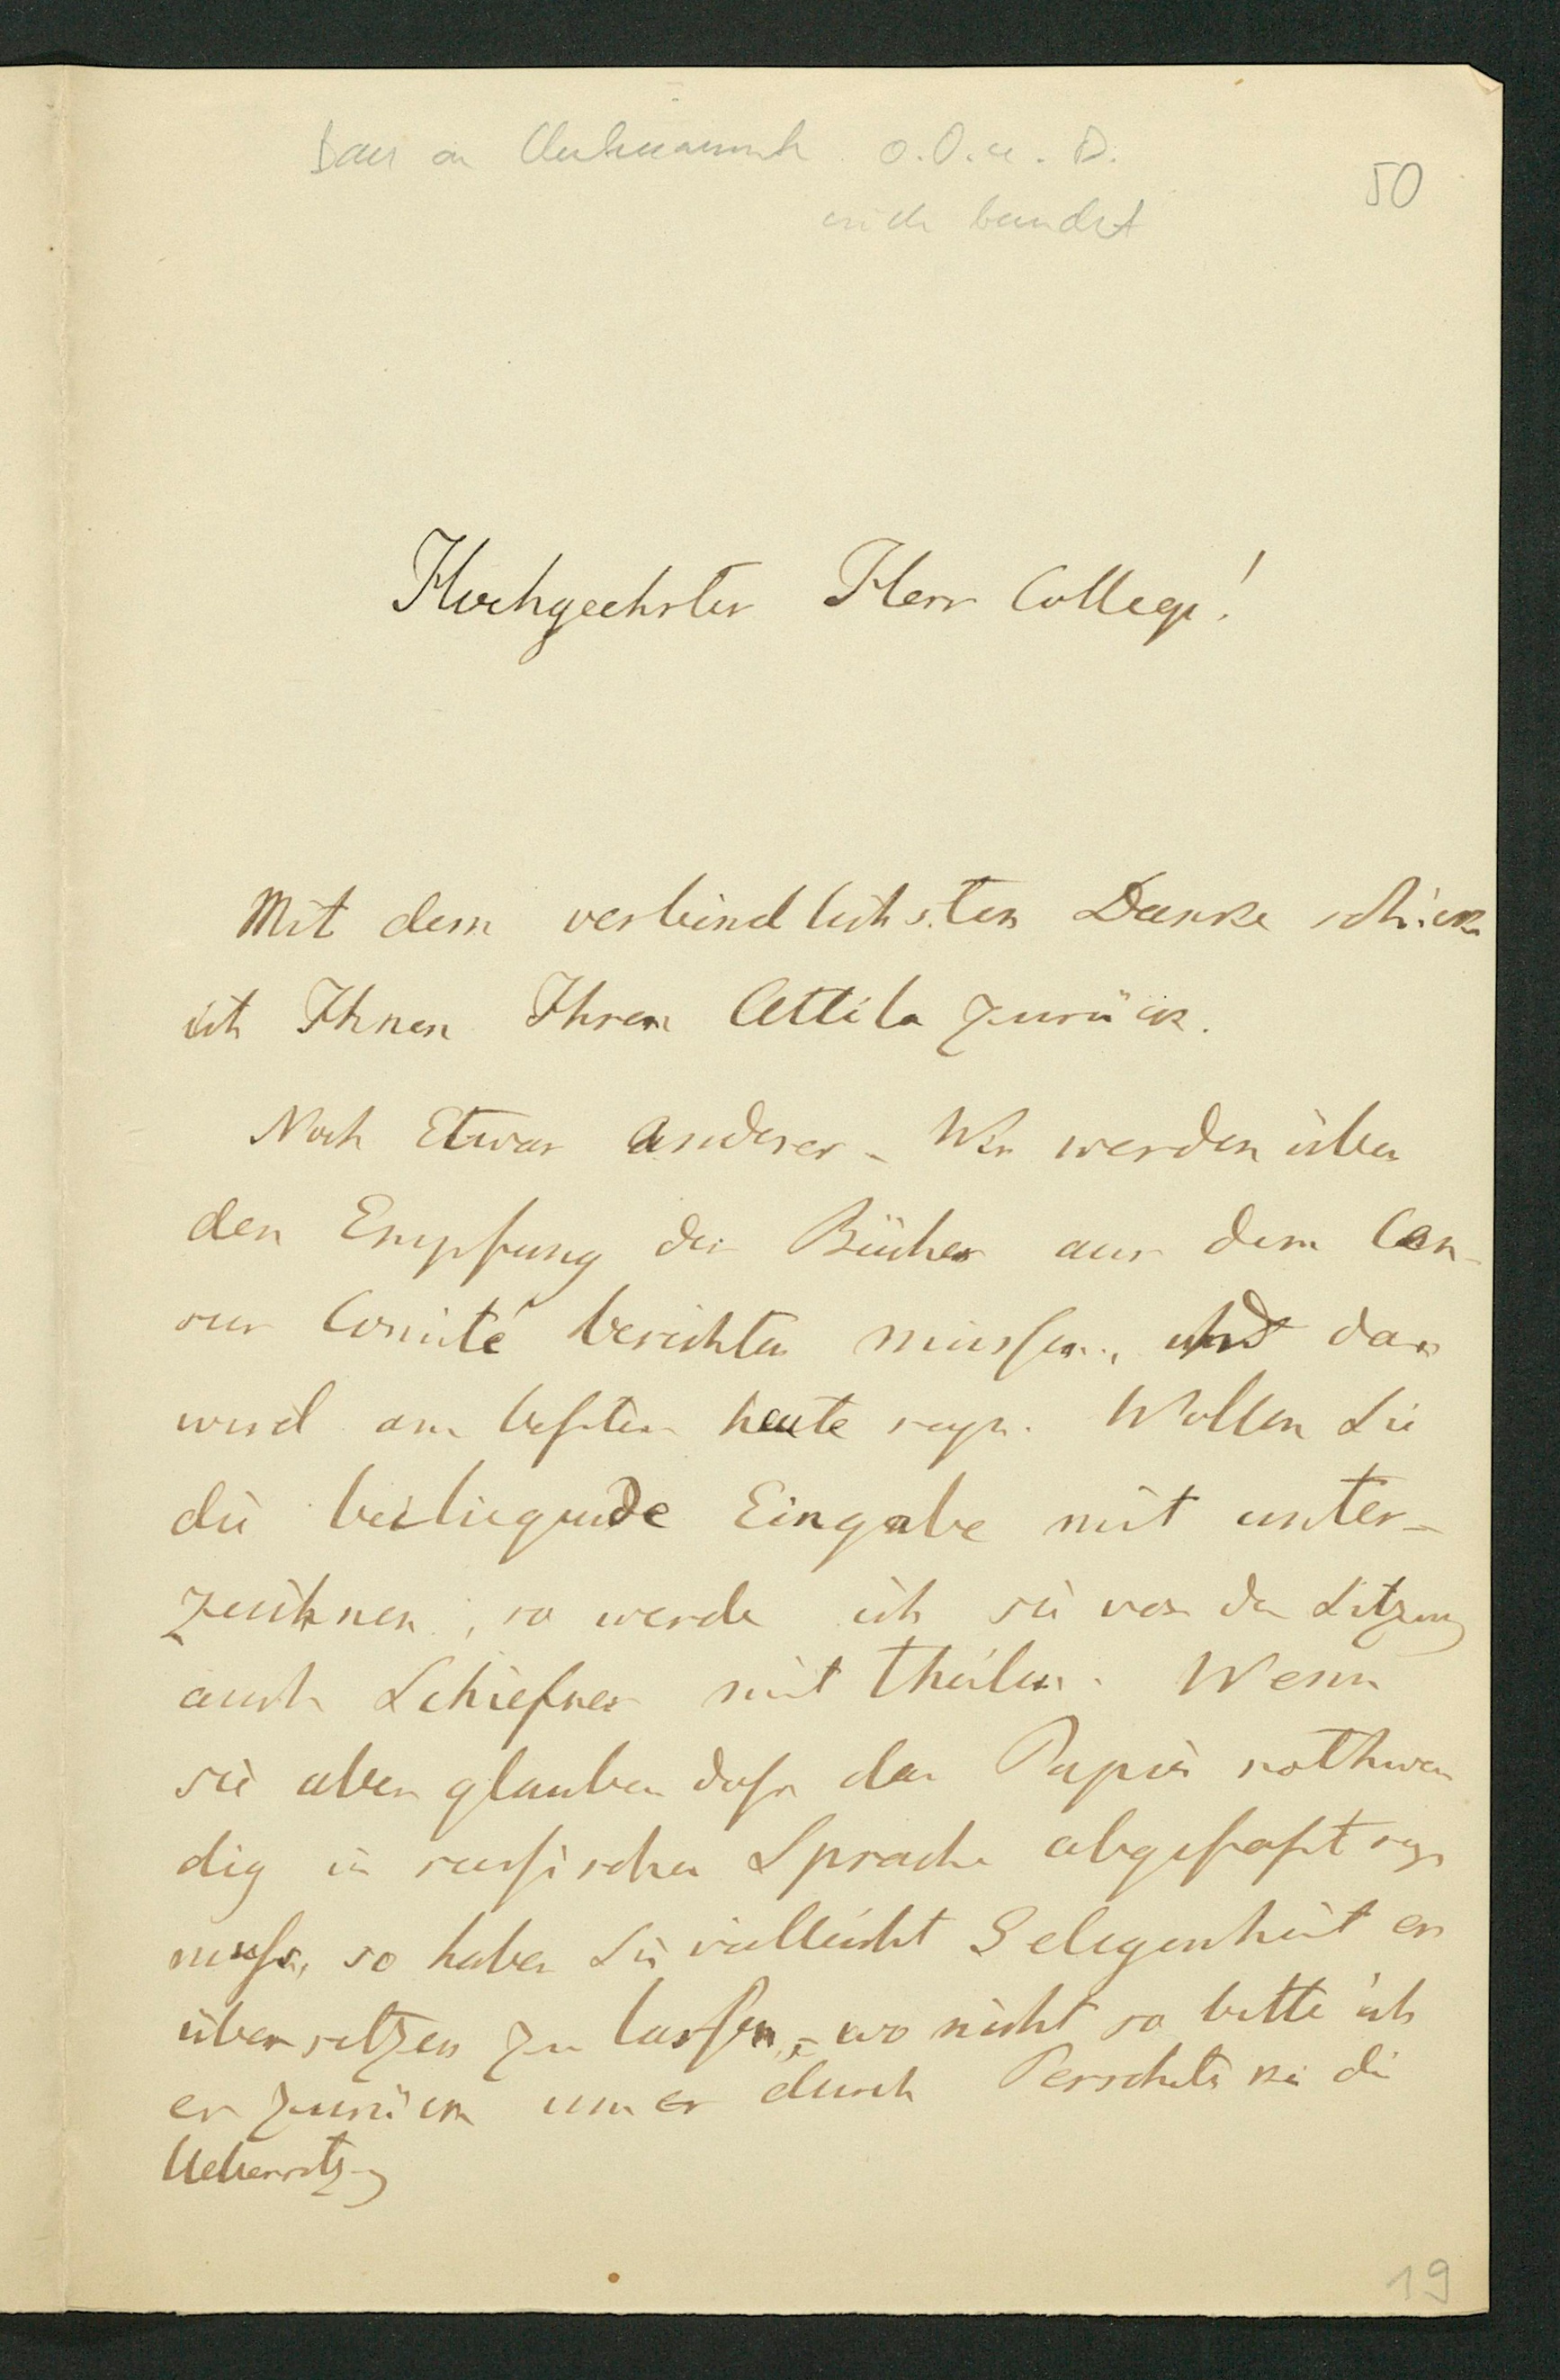 Baer an Unbekannt o.O.u.D.
nicht beendet
50
Hochgeehrter Herr College!
Mit dem verbindlichsten Danke schicke
ich Ihnen Ihren Attila zurück.
Noch Etwas anderes – Wir werden über
den Empfang der Bücher aus dem Cen-
sur Comité berichten müssen, und das
wird am besten heute seyn. Wollen Sie
die beiliegende Eingabe mit unter-
zeichnen, so werde ich sie vor der Sitzung
auch Schiefner mit theilen. Wenn
sie aber glauben dass das Papier nothwen
dig in russischer Sprache abgefasst seyn
muss, so haben Sie vielleicht Gelegenheit es
übersetzen zu lassen, – wo nicht so bitte ich
es zurück um es durch die
Uebersetzung
19